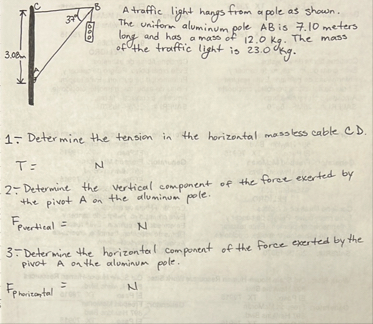 C
B
37°
3.08m
A
A traffic light hangs from a pole as shown.
The uniform aluminum pole AB is 7.10 meters
long and has a mass of 12.0 kg. The mass
of the traffic light is 23.0 kg.
1- Determine the tension in the horizontal massless cable CD.
T = N
2- Determine the vertical component of the force exerted by
the pivot A on the aluminum pole.
Fpvertical = N
3- Determine the horizontal component of the force exerted by the
pivot A on the aluminum pole.
Fphorizontal = N